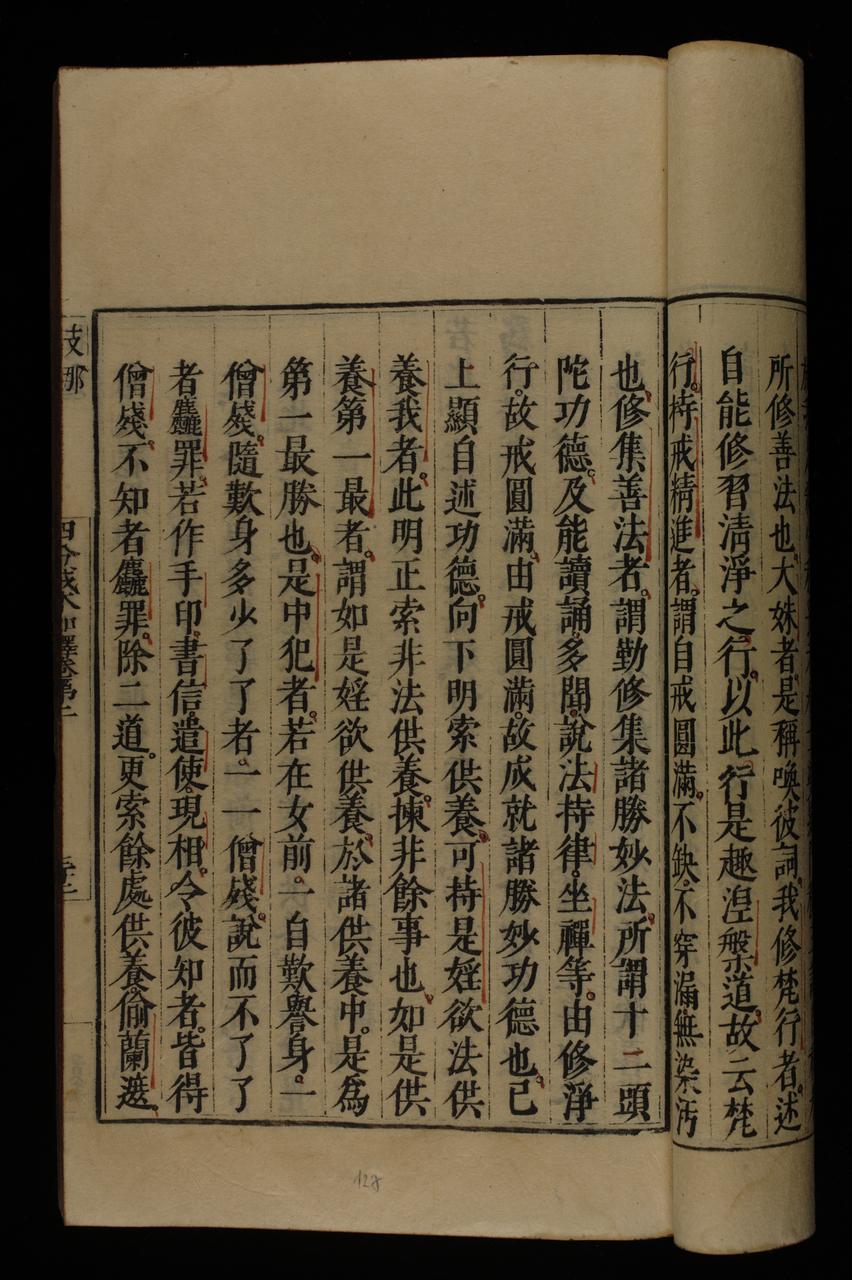 所修善法也大姊者是稱喚彼詞我修梵行者述
自能修習清淨之行以此行是趣涅槃道故云梵
行持戒精進者謂自戒圓滿不缺不穿漏無染污
也修集善法者謂勤修集諸勝妙法所謂十二頭
陀功德及能讀誦多聞說法持律坐禪等由修淨
行故戒圓滿由戒圓滿故成就諸勝妙功德也已
上顯自述功德向下明索供養可持是婬欲法供
養我者此明正索非法供養揀非餘事也如是供
養第一最者謂如是婬欲供養於諸供養中是為
第一最勝也是中犯者若在女前一自歎譽身一
僧殘隨歎身多少了了者一一僧殘說而不了了
者麤罪若作手印書信遣使現相令彼知者皆得
僧殘不知者麤罪除二道更索餘處供養偷蘭遮
支那
四分戒本如釋卷第二
128